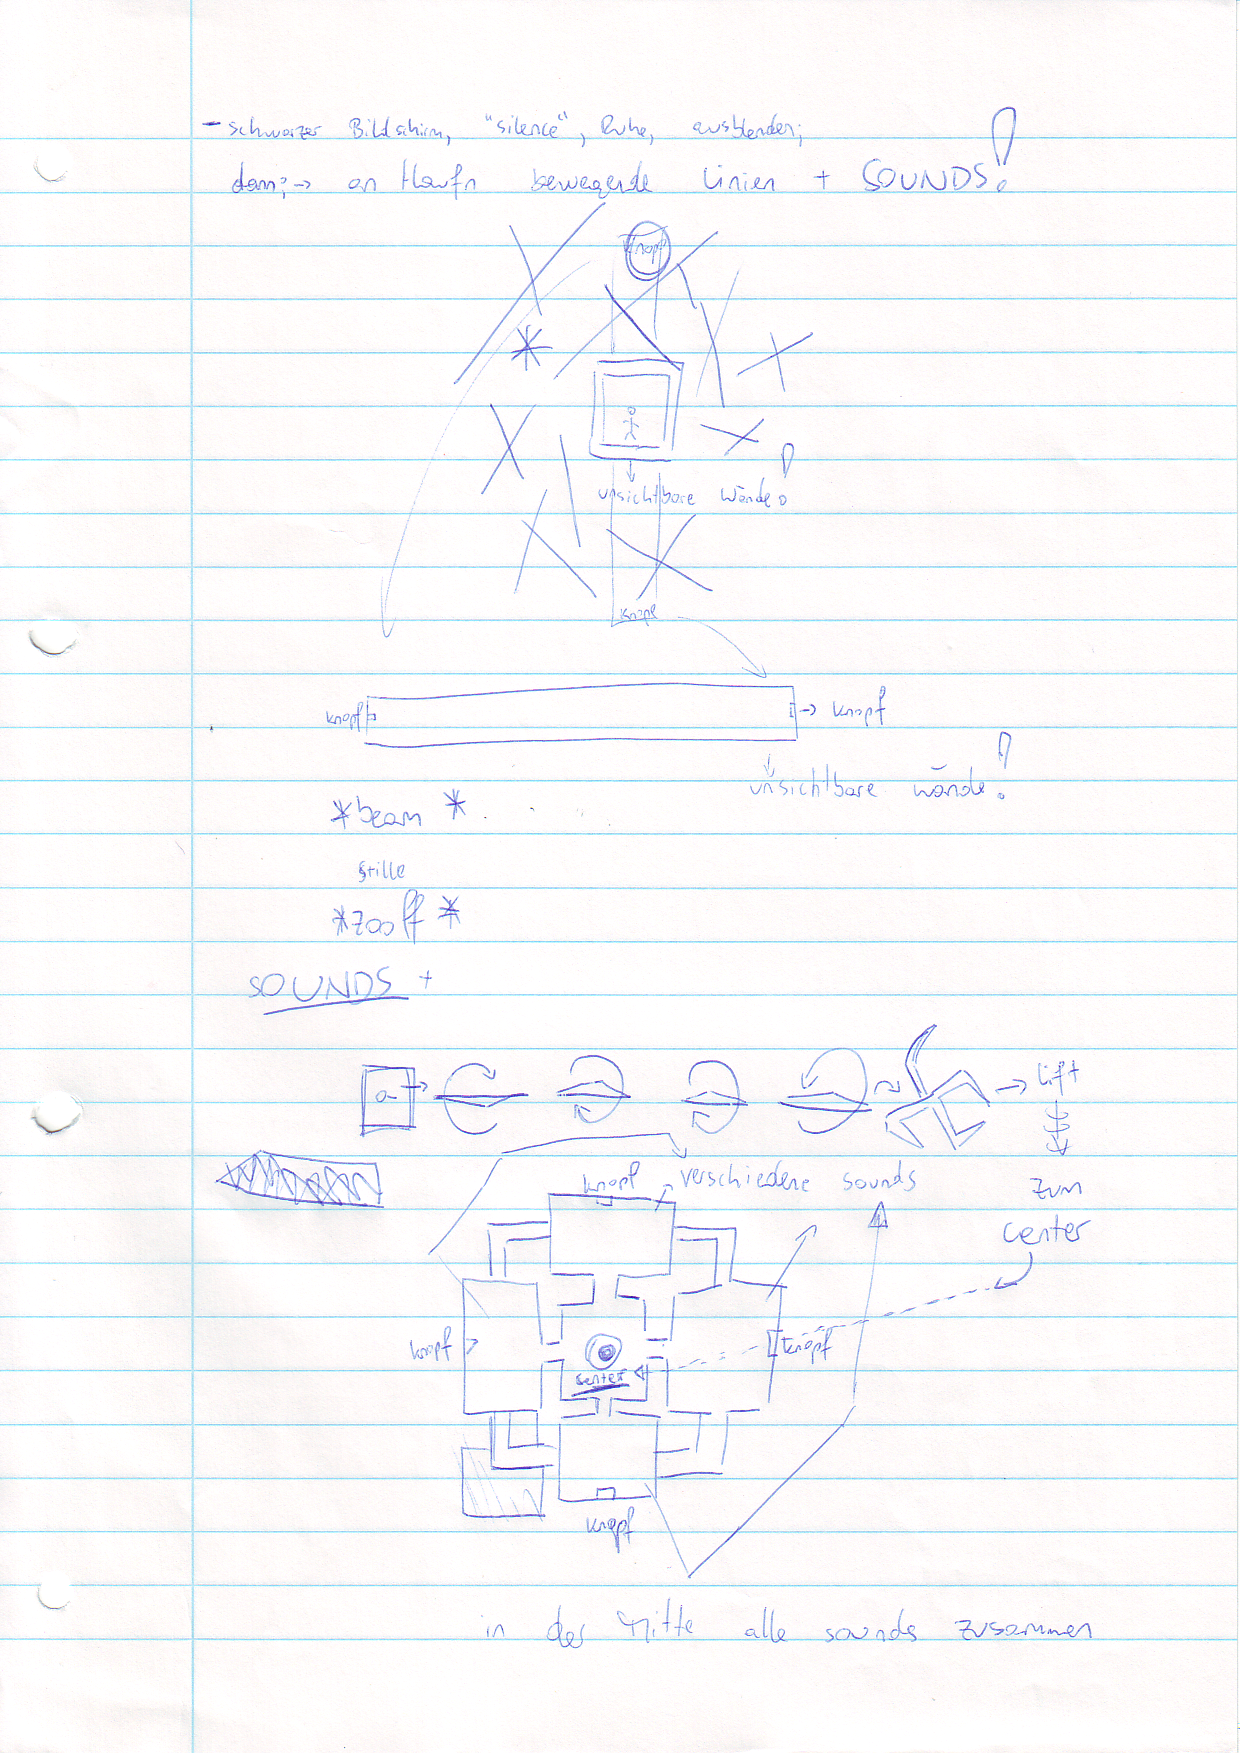 - schwarzer Bildschirm, "silence", Ruhe, ausblenden;
dann; → an Haufn bewegende Linien + SOUNDS!
Knopf
unsichtbare Wände!
Knopf
Knopf → Knopf
unsichtbare Wände!
*beam*
stille
*zooff*
SOUNDS +
→ Lift
Knopf verschiedene sounds
zum
center
Knopf
center
Knopf
Knopf
in der Mitte alle sounds zusammen